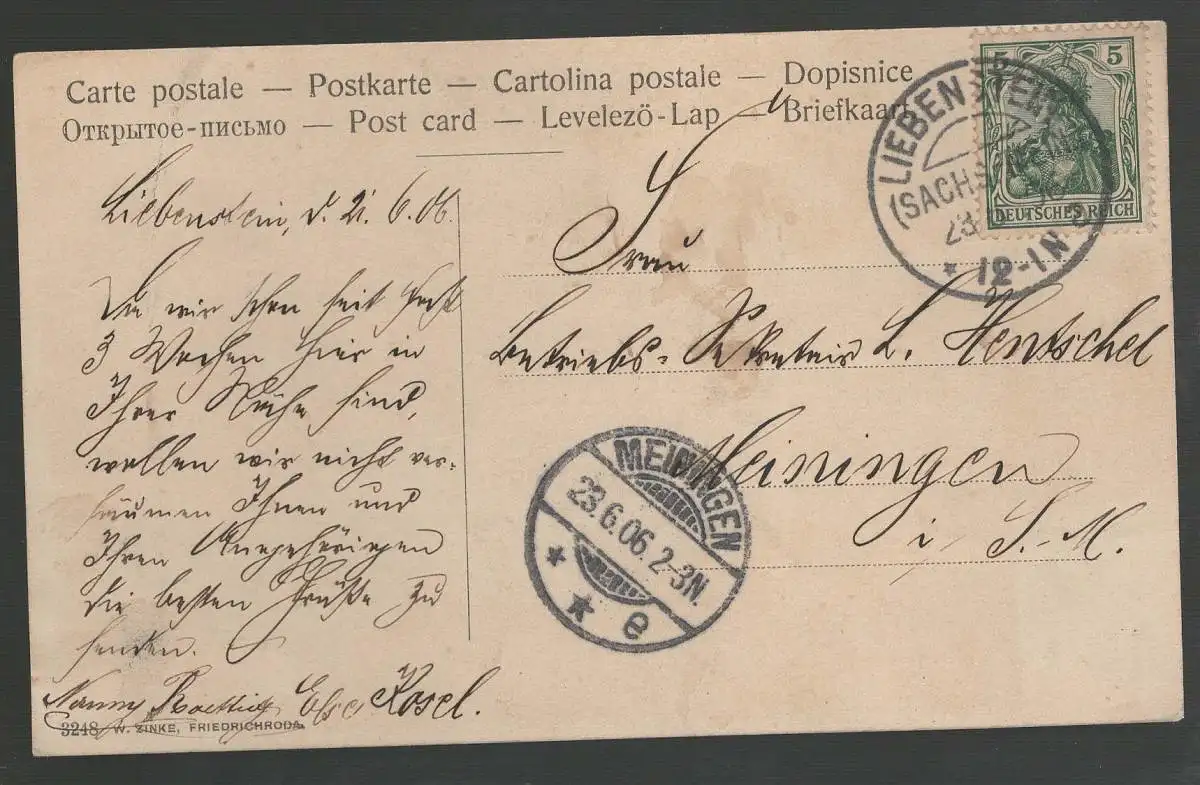 Carte postale — Postkarte — Cartolina postale — Dopisnice
Открытое-письмо — Post card — Levelezö-Lap — Briefkaart
Liebenstein, d. 21. 6. 06.
Da wir schon seit fast
3 Wochen hier in
Ihrer Nähe sind,
wollen wir nicht ver-
säumen Ihnen und
Ihren Angehörigen
die besten Grüße zu
senden.
Nanny Else Kosel.
3248 W. ZINKE, FRIEDRICHRODA.
5 5
DEUTSCHES REICH
LIEBENSTEIN
(SACHS.
23.
* 12-1N
Frau
Betriebs-Sekretair L. Hentschel
Meiningen
i. S.-M.
MEININGEN
23.6.06. 2-3N.
* * e